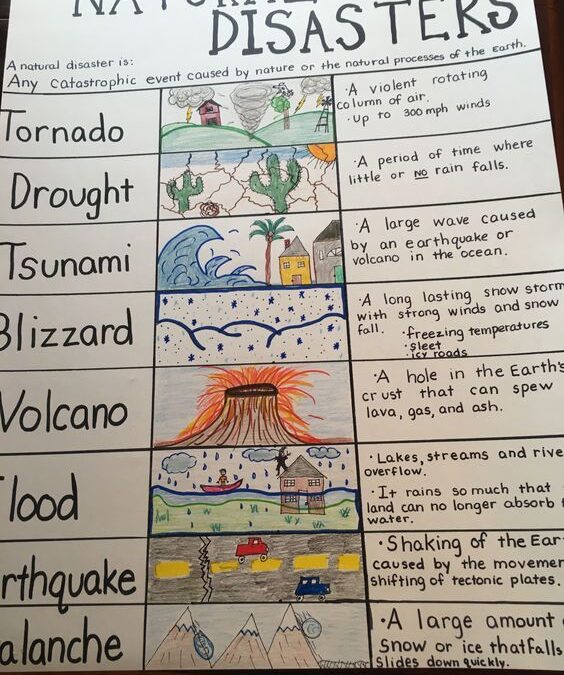 NATURAL
DISASTERS
A natural disaster is:
Any catastrophic event caused by nature or the natural processes of the Earth.
Tornado
·A violent rotating
column of air.
·Up to 300 mph winds
Drought
·A period of time where
little or NO rain falls.
Tsunami
·A large wave caused
by an earthquake or
volcano in the ocean.
Blizzard
·A long lasting snow storm
with strong winds and snow
fall. ·freezing temperatures
·sleet
·icy roads
Volcano
·A hole in the Earth's
crust that can spew
lava, gas, and ash.
lood
·Lakes, streams and rive
overflow.
·It rains so much that
land can no longer absorb
water.
rthquake
·Shaking of the Ear
caused by the movemen
shifting of tectonic plates.
alanche
·A large amount
snow or ice that falls
slides down quickly.